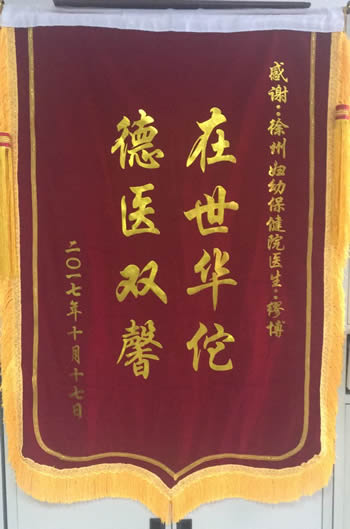 感谢：徐州妇幼保健院医生：缪博
在世华佗
德医双馨
二〇一七年十月十七日